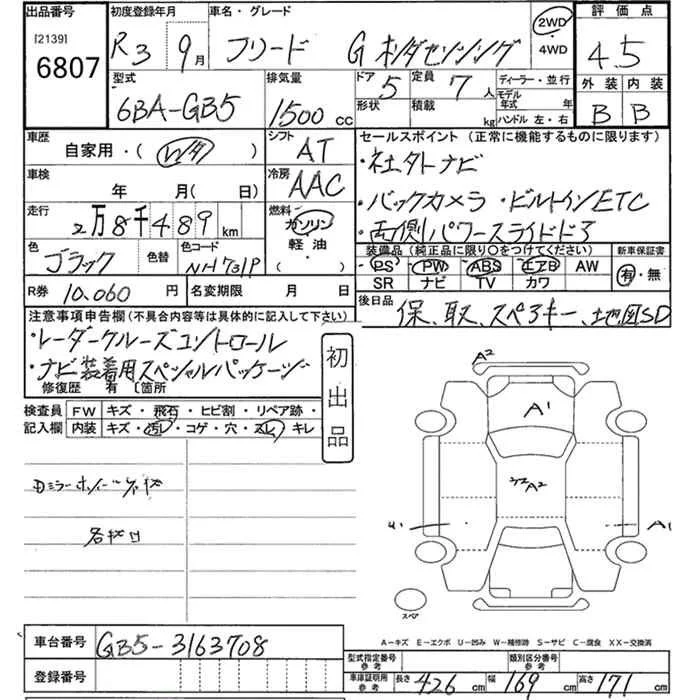 出品番号 初度登録年月 車名・グレード 評価点
[2139] 6807
R3 9月 フリード G ホンダセンシング 2WD・4WD 4.5
型式 排気量 ドア 5 定員 7人 ディーラー・並行 外装 内装
形状 積載 kg モデル年式 年 ハンドル 左・右
6BA-GB5 1500cc B B
車歴 シフト セールスポイント (正常に機能するものに限ります)
自家用・( ) AT
・社外ナビ
車検 冷房
年 月(日) AAC
・バックカメラ ・ビルトインETC
走行 燃料
2万8千489km ガソリン・軽油・( )
・両側パワースライドドア
色 色替 色コード 装備品(純正品に限り○をつけてください) 新車保証書
ブラック NH731P
PS PW ABS エアB AW 有・無
SR ナビ TV カワ
R券 10,060円 名変期限 月 日
後日品 保、取、スペアキー、地図SD
注意事項申告欄(不具合内容等は具体的に記入して下さい)
・レーダークルーズコントロール
・ナビ装着用スペシャルパッケージ
修復歴 有 〔箇所
初出品
検査員記入欄 FW キズ・飛石・ヒビ割・リペア跡・
内装 キズ・汚レ・コゲ・穴・スレ・キレ
A2
A1
A2
A1
スペア
A-キズ E-エクボ U-凹み W-補修跡 S-サビ C-腐食 XX-交換済
車台番号 GB5-3163708
登録番号
型式指定番号 参考 類別区分番号 参考
車庫証明用 参考 長さ 426cm 幅 169cm 高さ 171cm